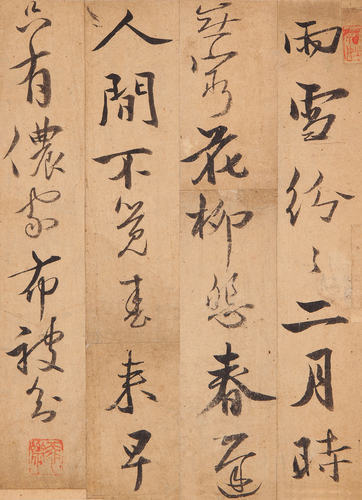 雨雪紛〻二月時
無窮花柳怨春遲
人間不覺春來早
只有儂家布被知